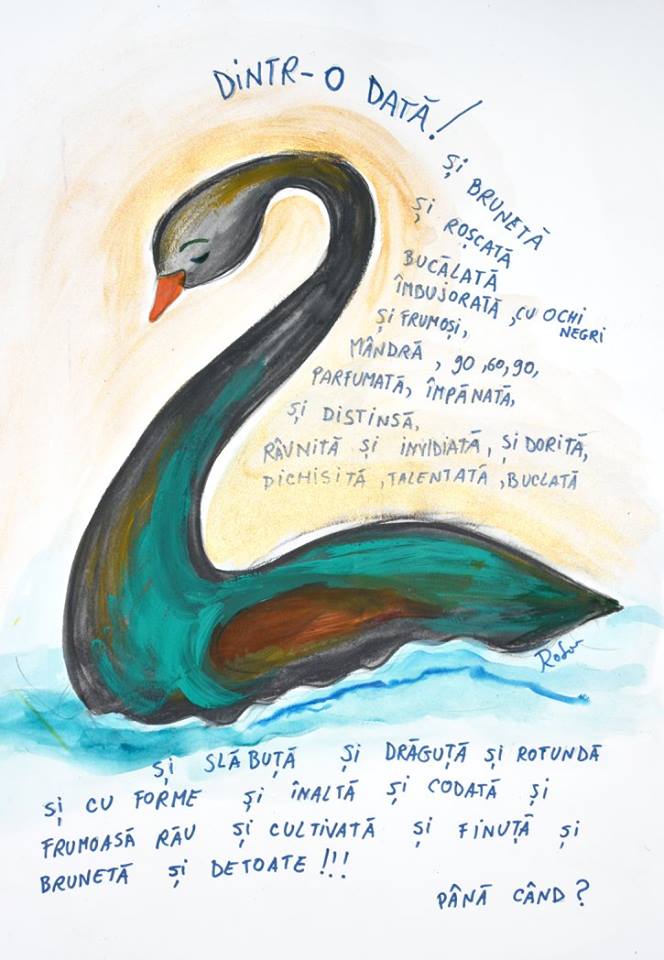 DINTR-O DATĂ!
ȘI BRUNETĂ
ȘI ROȘCATĂ
BUCĂLATĂ
ÎMBUJORATĂ, CU OCHI NEGRI
ȘI FRUMOȘI,
MÂNDRĂ, 90,60,90,
PARFUMATĂ, ÎMPĂNATĂ,
ȘI DISTINSĂ,
RÂVNITĂ ȘI INVIDIATĂ, ȘI DORITĂ,
DICHISITĂ, TALENTATĂ, BUCLATĂ
ȘI SLĂBUȚĂ ȘI DRĂGUȚĂ ȘI ROTUNDĂ
ȘI CU FORME ȘI ÎNALTĂ ȘI CODATĂ ȘI
FRUMOASĂ RĂU ȘI CULTIVATĂ ȘI FINUȚĂ ȘI
BRUNETĂ ȘI DETOATE!!!
PÂNĂ CÂND?